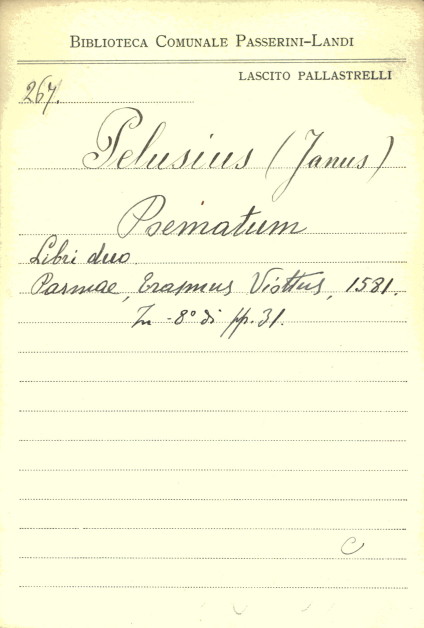 BIBLIOTECA COMUNALE PASSERINI-LANDI
LASCITO PALLASTRELLI
267.
Pelusius (Janus)
Poematum
Libri duo
Parmae, Erasmus Viottus, 1581.
In-8° di pp. 31.
C